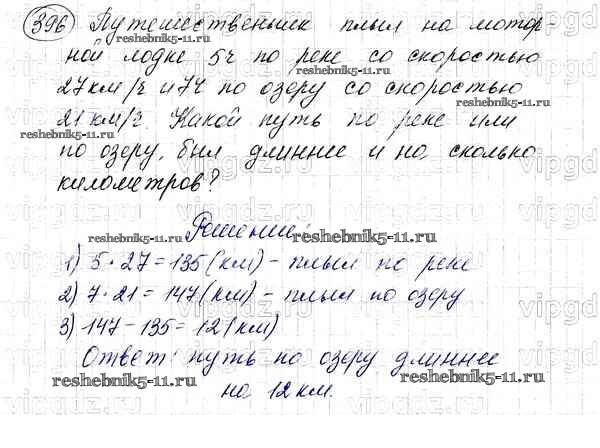 396 Путешественник плыл на мотор-
ной лодке 5ч по реке со скоростью
reshebnik5-11.ru
27км/ч и 7ч по озеру со скоростью
reshebnik5-11.ru
21 км/ч. Какой путь по реке или
reshebnik5-11.ru
по озеру, был длиннее и на сколько
километров?
Решение:
reshebnik5-11.ru reshebnik5-11.ru
1) 5·27=135(км)- плыл по реке
2) 7·21=147(км)- плыл по озеру
3) 147-135=12(км)
Ответ: путь по озеру длиннее
reshebnik5-11.ru reshebnik5-11.ru
на 12 км.